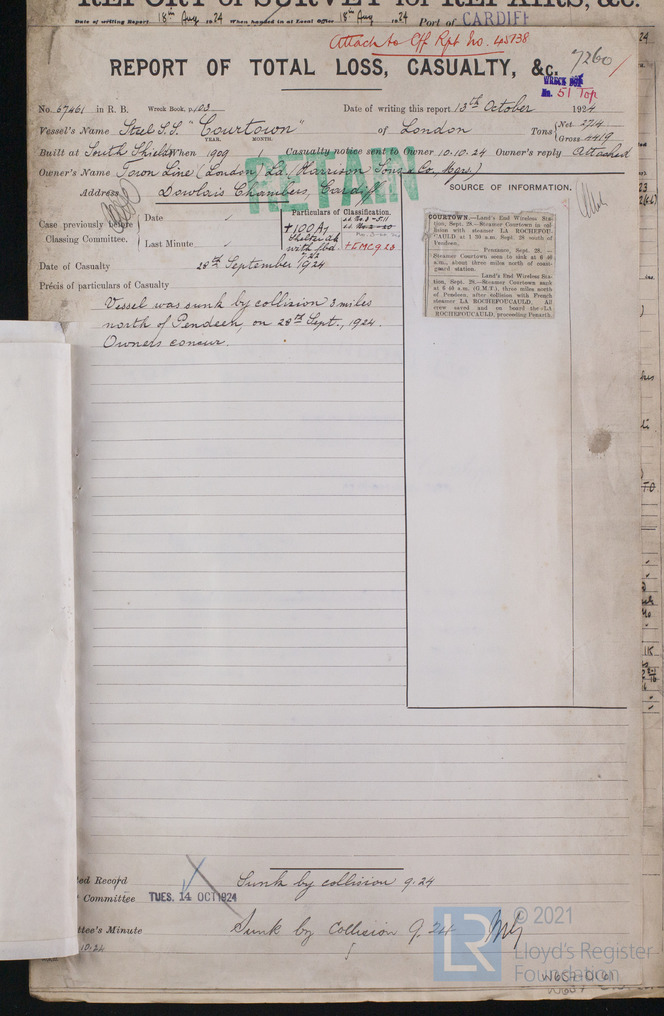 REPORT of SURVEY for REPAIRS, &c.
Date of writing Report 18th Aug 1924 When handed in at Local Office 18th Aug 1924 Port of CARDIFF
Attach to Cff Rpt No. 45738
7260
REPORT OF TOTAL LOSS, CASUALTY, &c.
WRECK BOX
No. 51 Top
No. 67461 in R. B. Wreck Book, p. 103 Date of writing this report 13th October 1924
Vessel's Name Steel S.S. "Courtown" of London Tons Net 2714
Gross 4419
YEAR. MONTH.
Built at South Shields When 1909 1 Casualty notice sent to Owner 10.10.24 Owner's reply Attached
RETAIN
Owner's Name Town Line (London) Ld. (Harrison Sons & Co, Mgrs.)
Address Dowlais Chambers, Cardiff
SOURCE OF INFORMATION.
Case previously before Classing Committee.
Date
Last Minute
Particulars of Classification.
+100A1
with fbd.
+LMC 9.23
Date of Casualty 28th September 1924
Précis of particulars of Casualty
Vessel was sunk by collision 3 miles
north of Pendeen, on 28th Sept., 1924.
Owners concur.
COURTOWN.—Land's End Wireless Sta-
tion, Sept. 28.—Steamer Courtown in col-
lision with steamer LA ROCHEFOU-
CAULD at 1 30 a.m. Sept. 28 south of
Pendeen.
— Penzance, Sept. 28. —
Steamer Courtown seen to sink at 6 46
a.m., about three miles north of coast-
guard station.
— Land's End Wireless Sta-
tion, Sept. 28.—Steamer Courtown sunk
at 6 46 a.m. (G.M.T.), three miles north
of Pendeen, after collision with French
steamer LA ROCHEFOUCAULD. All
crew saved and on board the LA
ROCHEFOUCAULD, proceeding Penarth.
Record Sunk by collision 9.24
Committee TUES. 14 OCT 1924
Minute Sunk by Collision 9.24
10.24
LR
© 2021
Lloyd's Register
Foundation